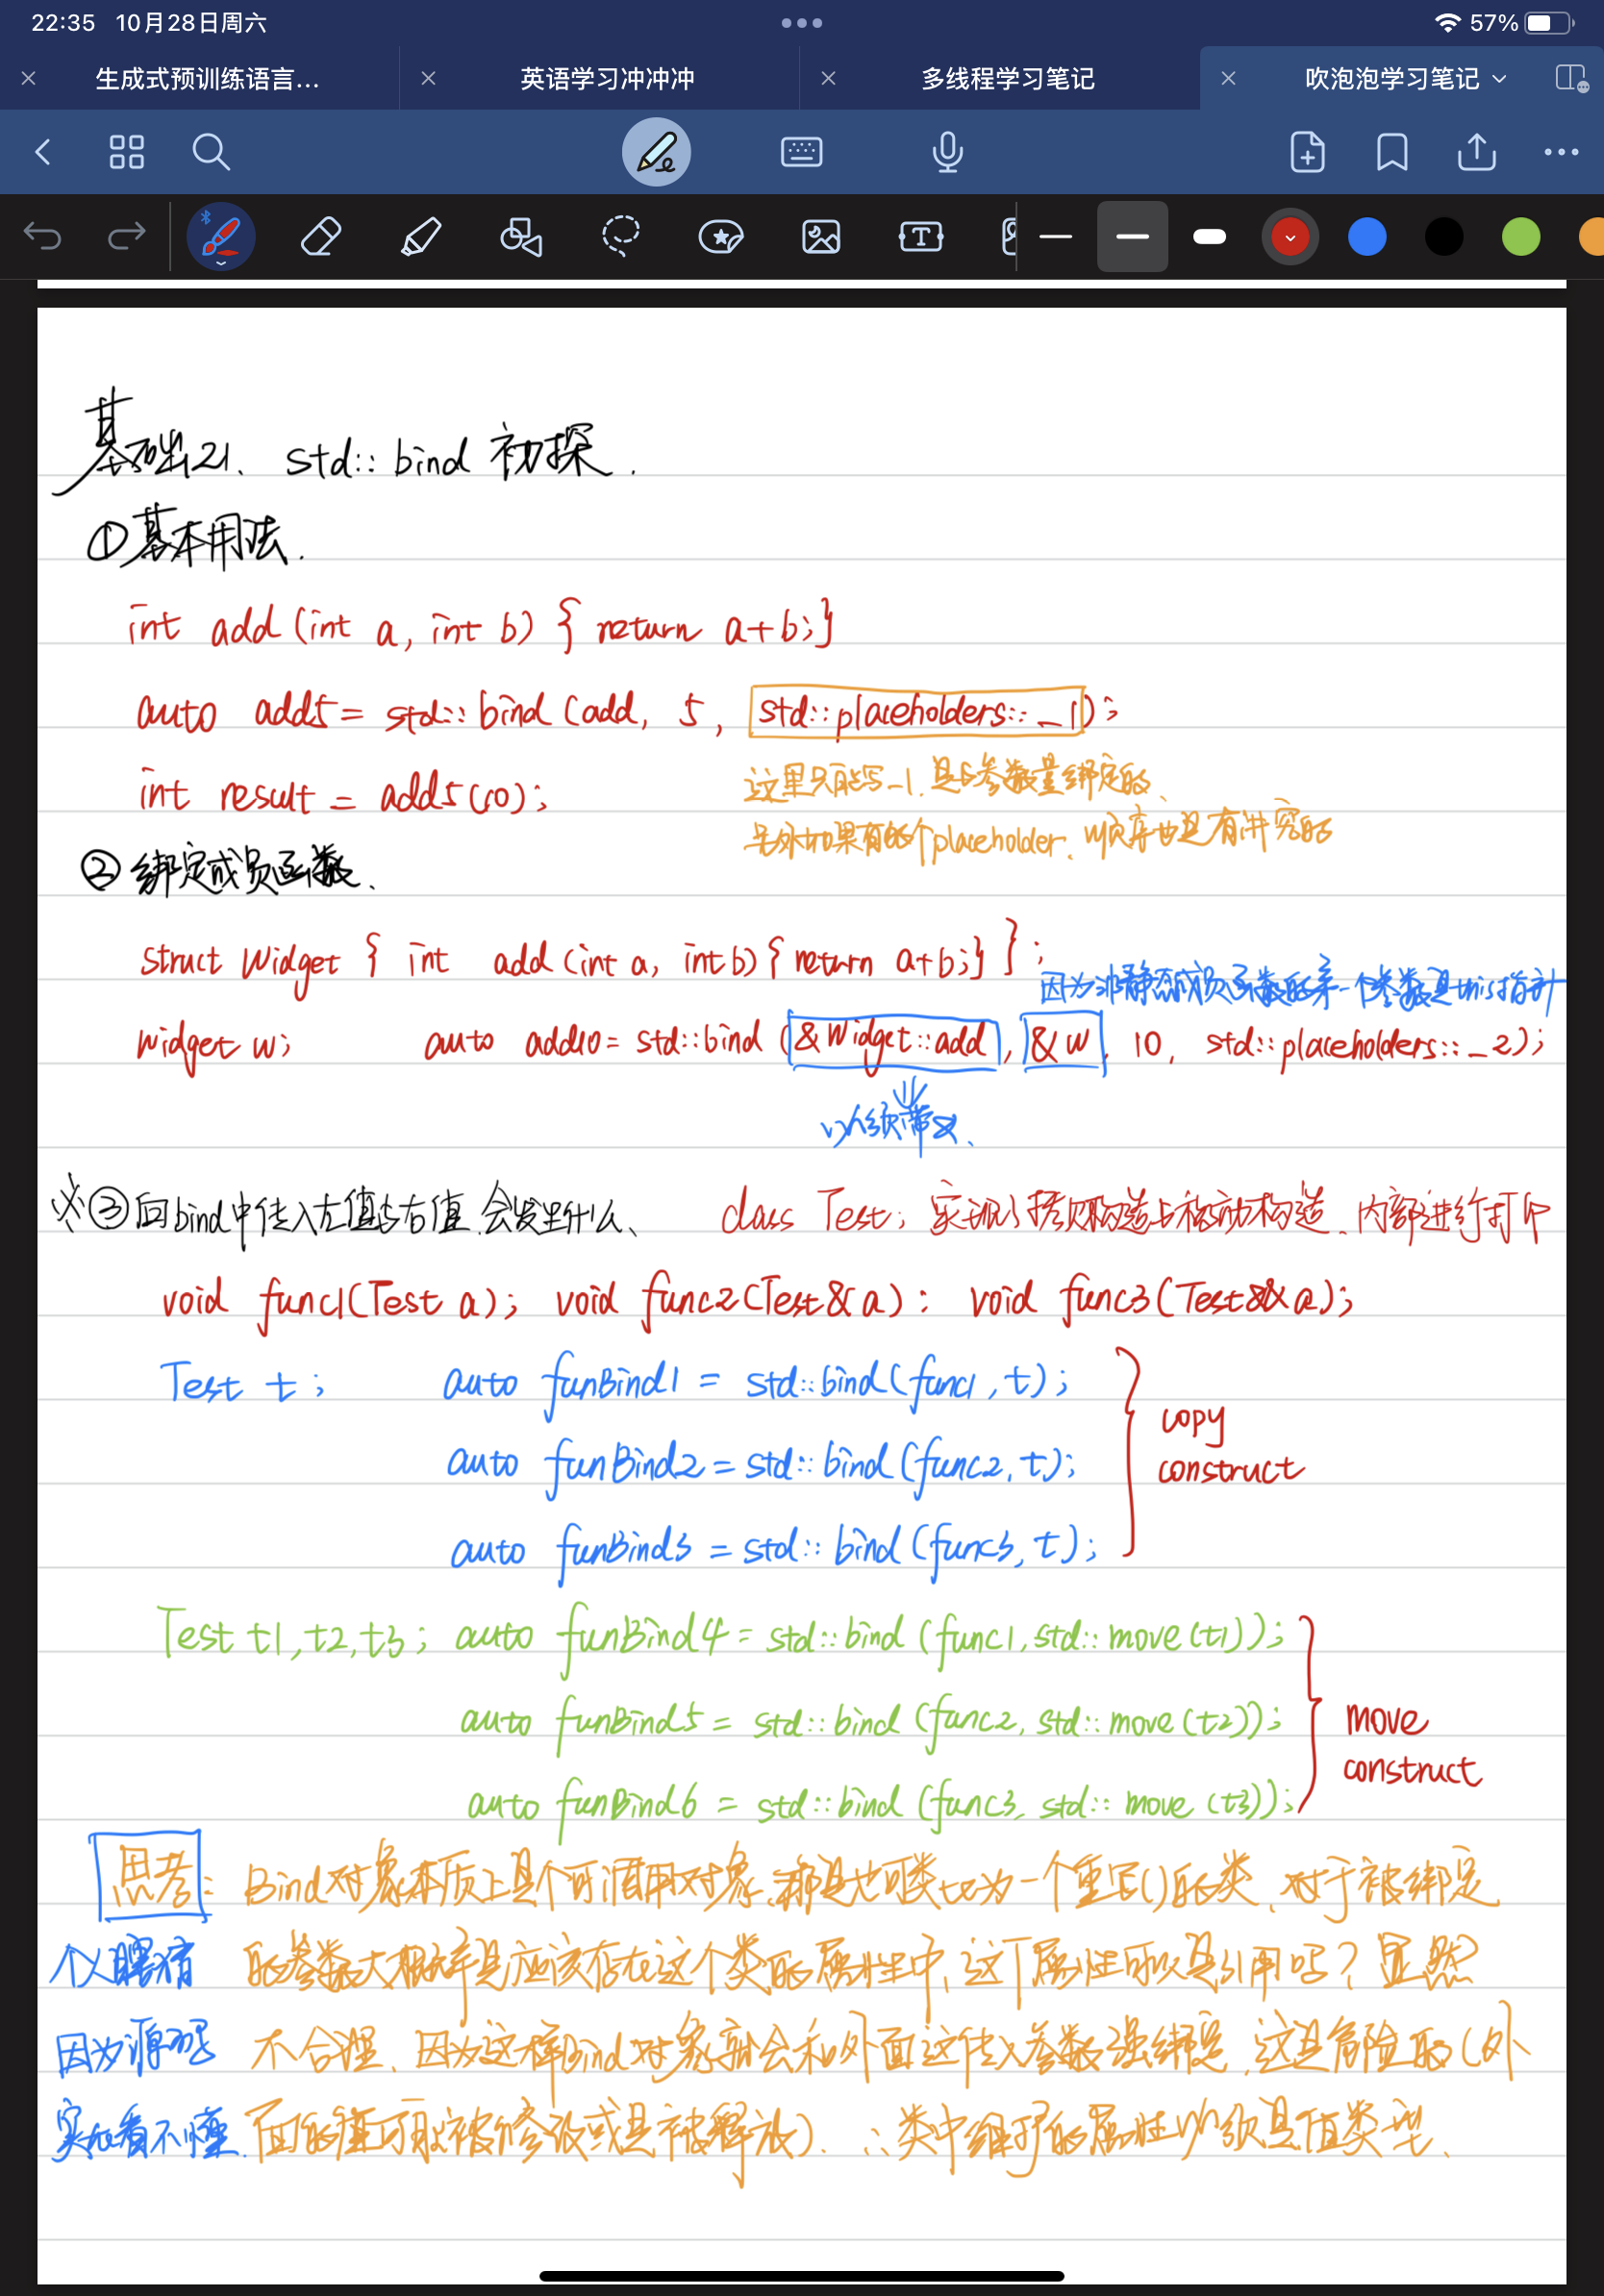 22:35 10月28日周六
57%
生成式预训练语言...
英语学习冲冲冲
多线程学习笔记
吹泡泡学习笔记
基础21、 std::bind 初探.
①基本用法.
int add (int a, int b) { return a+b;}
auto add5= std::bind (add, 5, std::placeholders::_1);
int result = add5(10);
这里只能写_1.是与参数量绑定的、
另外如果有的个placeholder、顺序也是有讲究的
②绑定成员函数、
struct Widget { int add (int a, int b){ return a+b;} };
因为非静态成员函数的第一个参数是this指针
Widget w; auto add10= std::bind (&Widget::add, &w, 10, std::placeholders::_2);
必须带&、
※③向bind中传入左值与右值.会发生什么、 class Test; 实现了拷贝构造与移动构造、内部进行打印
void func1(Test a); void func2(Test& a): void func3(Test&& a);
Test t; auto funBind1 = std::bind(func1,t);
auto funBind2 = std::bind(func2,t);
auto funBind3 = std::bind(func3,t);
copy
construct
Test t1,t2,t3; auto funBind4 = std::bind (func1,std::move(t1));
auto funBind5 = std::bind (func2, std::move(t2));
auto funBind6 = std::bind (func3, std::move(t3));
move
construct
思考: Bind对象本质上是个可调用对象、那是也可类比为一个重写()的类、对于被绑定
个人瞎猜 的参数大概率是应该存在这个类的属性中、这个属性可以是引用吗?显然
因为源码 不合理、因为这样Bind对象就会和外面这传入参数强绑定、这是危险的(外
实在看不懂. 面的值可以被修改或是被释放). ∴类中维护的属性必须是值类型、